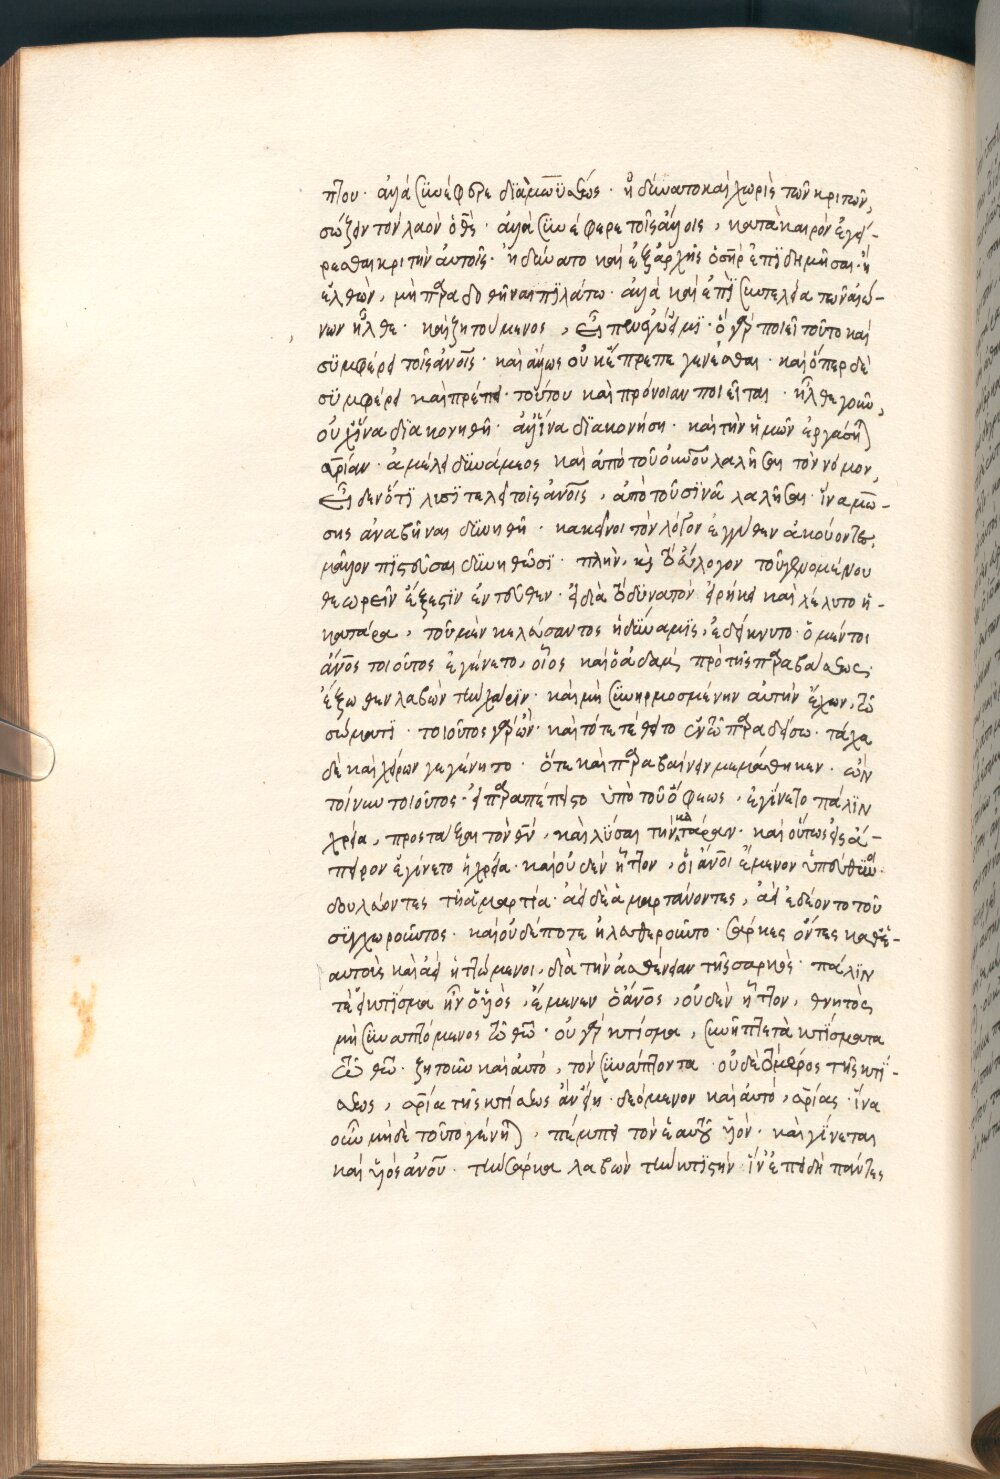 πτου· ἀλλὰ συνέφερε διὰ μωϋσέως· ἠδύνατο καὶ χωρὶς τῶν κριτῶν,
σώζειν τὸν λαὸν ὁ θς· ἀλλὰ συνέφερε τοῖς ἄλλοις, κατὰ καιρὸν ἐγεί-
ρεσθαι κριτὴν αὐτοῖς· ἠδύνατο καὶ ἐξ ἀρχῆς ὁ σηρ ἐπιδημῆσαι· ἢ
ἐλθὼν, μὴ παραδοθῆναι πιλάτω· ἀλλὰ καὶ ἐπὶ συντελεία τῶν αἰώ-
νων ἦλθε· καὶ ζητούμενος, εἶπεν ἐγώ εἰμι· ὃ γὰρ ποιεῖ τοῦτο καὶ
συμφέρει τοῖς ἀνοις· καὶ ἄλλως οὐκ ἔπρεπε γενέσθαι· καὶ ὅπερ δὲ
συμφέρει καὶ πρέπει· τούτου καὶ πρόνοιαν ποιεῖται· ἦλθε γοῦν,
οὐχ ἵνα διακονηθῆ· ἀλλ' ἵνα διακονήση· καὶ τὴν ἡμῶν ἐργάσηται
σριαν· ἀμέλει δυνάμενος καὶ ἀπὸ τοῦ οὐνοῦ λαλῆσαι τὸν νόμον,
εἶδεν ὅτι λισιτελεῖ τοῖς ἀνοις, ἀπὸ τοῦ σινᾶ λαλῆσαι· ἵνα μω-
σῆς ἀναβῆναι δυνηθῆ· κακεῖνοι τὸν λόγον ἐγγύθεν ἀκούοντες,
μᾶλλον πιστεῦσαι δυνηθῶσι· πλὴν, καὶ τὸ εὔλογον τοῦ γενομένου
θεωρεῖν ἔξεστιν ἐντεῦθεν· εἰ διὰ τὸ δυνατὸν εἰρήκει καὶ λέλυτο ἡ-
κατάρα, τοῦ μὲν κελεύσαντος ἡ δύναμις, ἐδείκνυτο· ὁ μέντοι
ἀνος τοιοῦτος ἐγένετο, οἷος καὶ ὁ ἀδαμ πρὸ τῆς παραβάσεως·
ἔξωθεν λαβὼν τὴν χάριν· καὶ μὴ συνηρμοσμένην αὐτὴν ἔχων, τῶ
σώματι· τοιοῦτος γὰρ ὢν· καὶ τότε τέθειτο ἐν τῶ παραδείσω· τάχα
δὲ καὶ χείρων γεγένητο· ὅτε καὶ παραβαίνειν μεμάθηκεν· ὢν
τοίνυν τοιοῦτος· εἰ παραπέπειστο ὑπὸ τοῦ ὄφεως, ἐγίνετο πάλιν
χρεία, προστάξαι τὸν θν, καὶ λῦσαι τὴν κατάραν· καὶ οὕτως εἰς ἄ-
πειρον ἐγίνετο ἡ χρεία· καὶ οὐδὲν ἧττον, οἱ ἀνοι ἔμενον ὑπεύθυνοι
δουλεύοντες τῆ ἁμαρτία· ἀεὶ δὲ ἁμαρτάνοντες, ἀεὶ ἐδέοντο τοῦ
συγχωροῦντος· καὶ οὐδέποτε ἠλευθεροῦντο· σάρκες ὄντες καθ' ἑ-
αυτοὺς καὶ ἀεὶ ἡττώμενοι, διὰ τὴν ἀσθένειαν τῆς σαρκὸς· πάλιν
τε εἰ κτίσμα ἦν ὁ υἱὸς, ἔμενεν ὁ ἀνος, οὐδὲν ἧττον, θνητὸς
μὴ συναπτόμενος τῶ θω· οὐ γὰρ κτίσμα, συνῆπτε τὰ κτίσματα
τῶ θω· ζητοῦν καὶ αὐτὸ, τὸν συνάπτοντα· οὐδὲ τὸ μέρος τῆς κτί-
σεως, σρία τῆς κτίσεως ἂν εἴη· δεόμενον καὶ αὐτὸ, σρίας· ἵνα
οὖν μηδὲ τοῦτο γένηται, πέμπει τὸν ἑαυτοῦ υἱὸν· καὶ γίνεται
καὶ υἱὸς ἀνου· τὴν σάρκα λαβὼν τὴν κτιστήν· ἵν' ἐπειδὴ πάντες